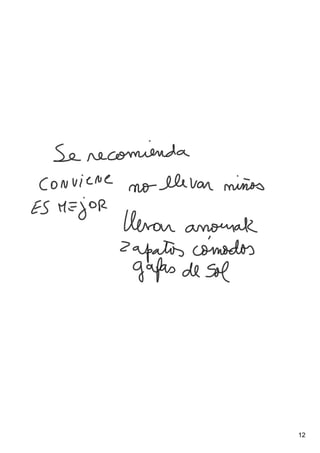 Se recomienda
CONVIENE no llevar niños
ES MEJOR
llevar anourak
zapatos cómodos
gafas de sol
12